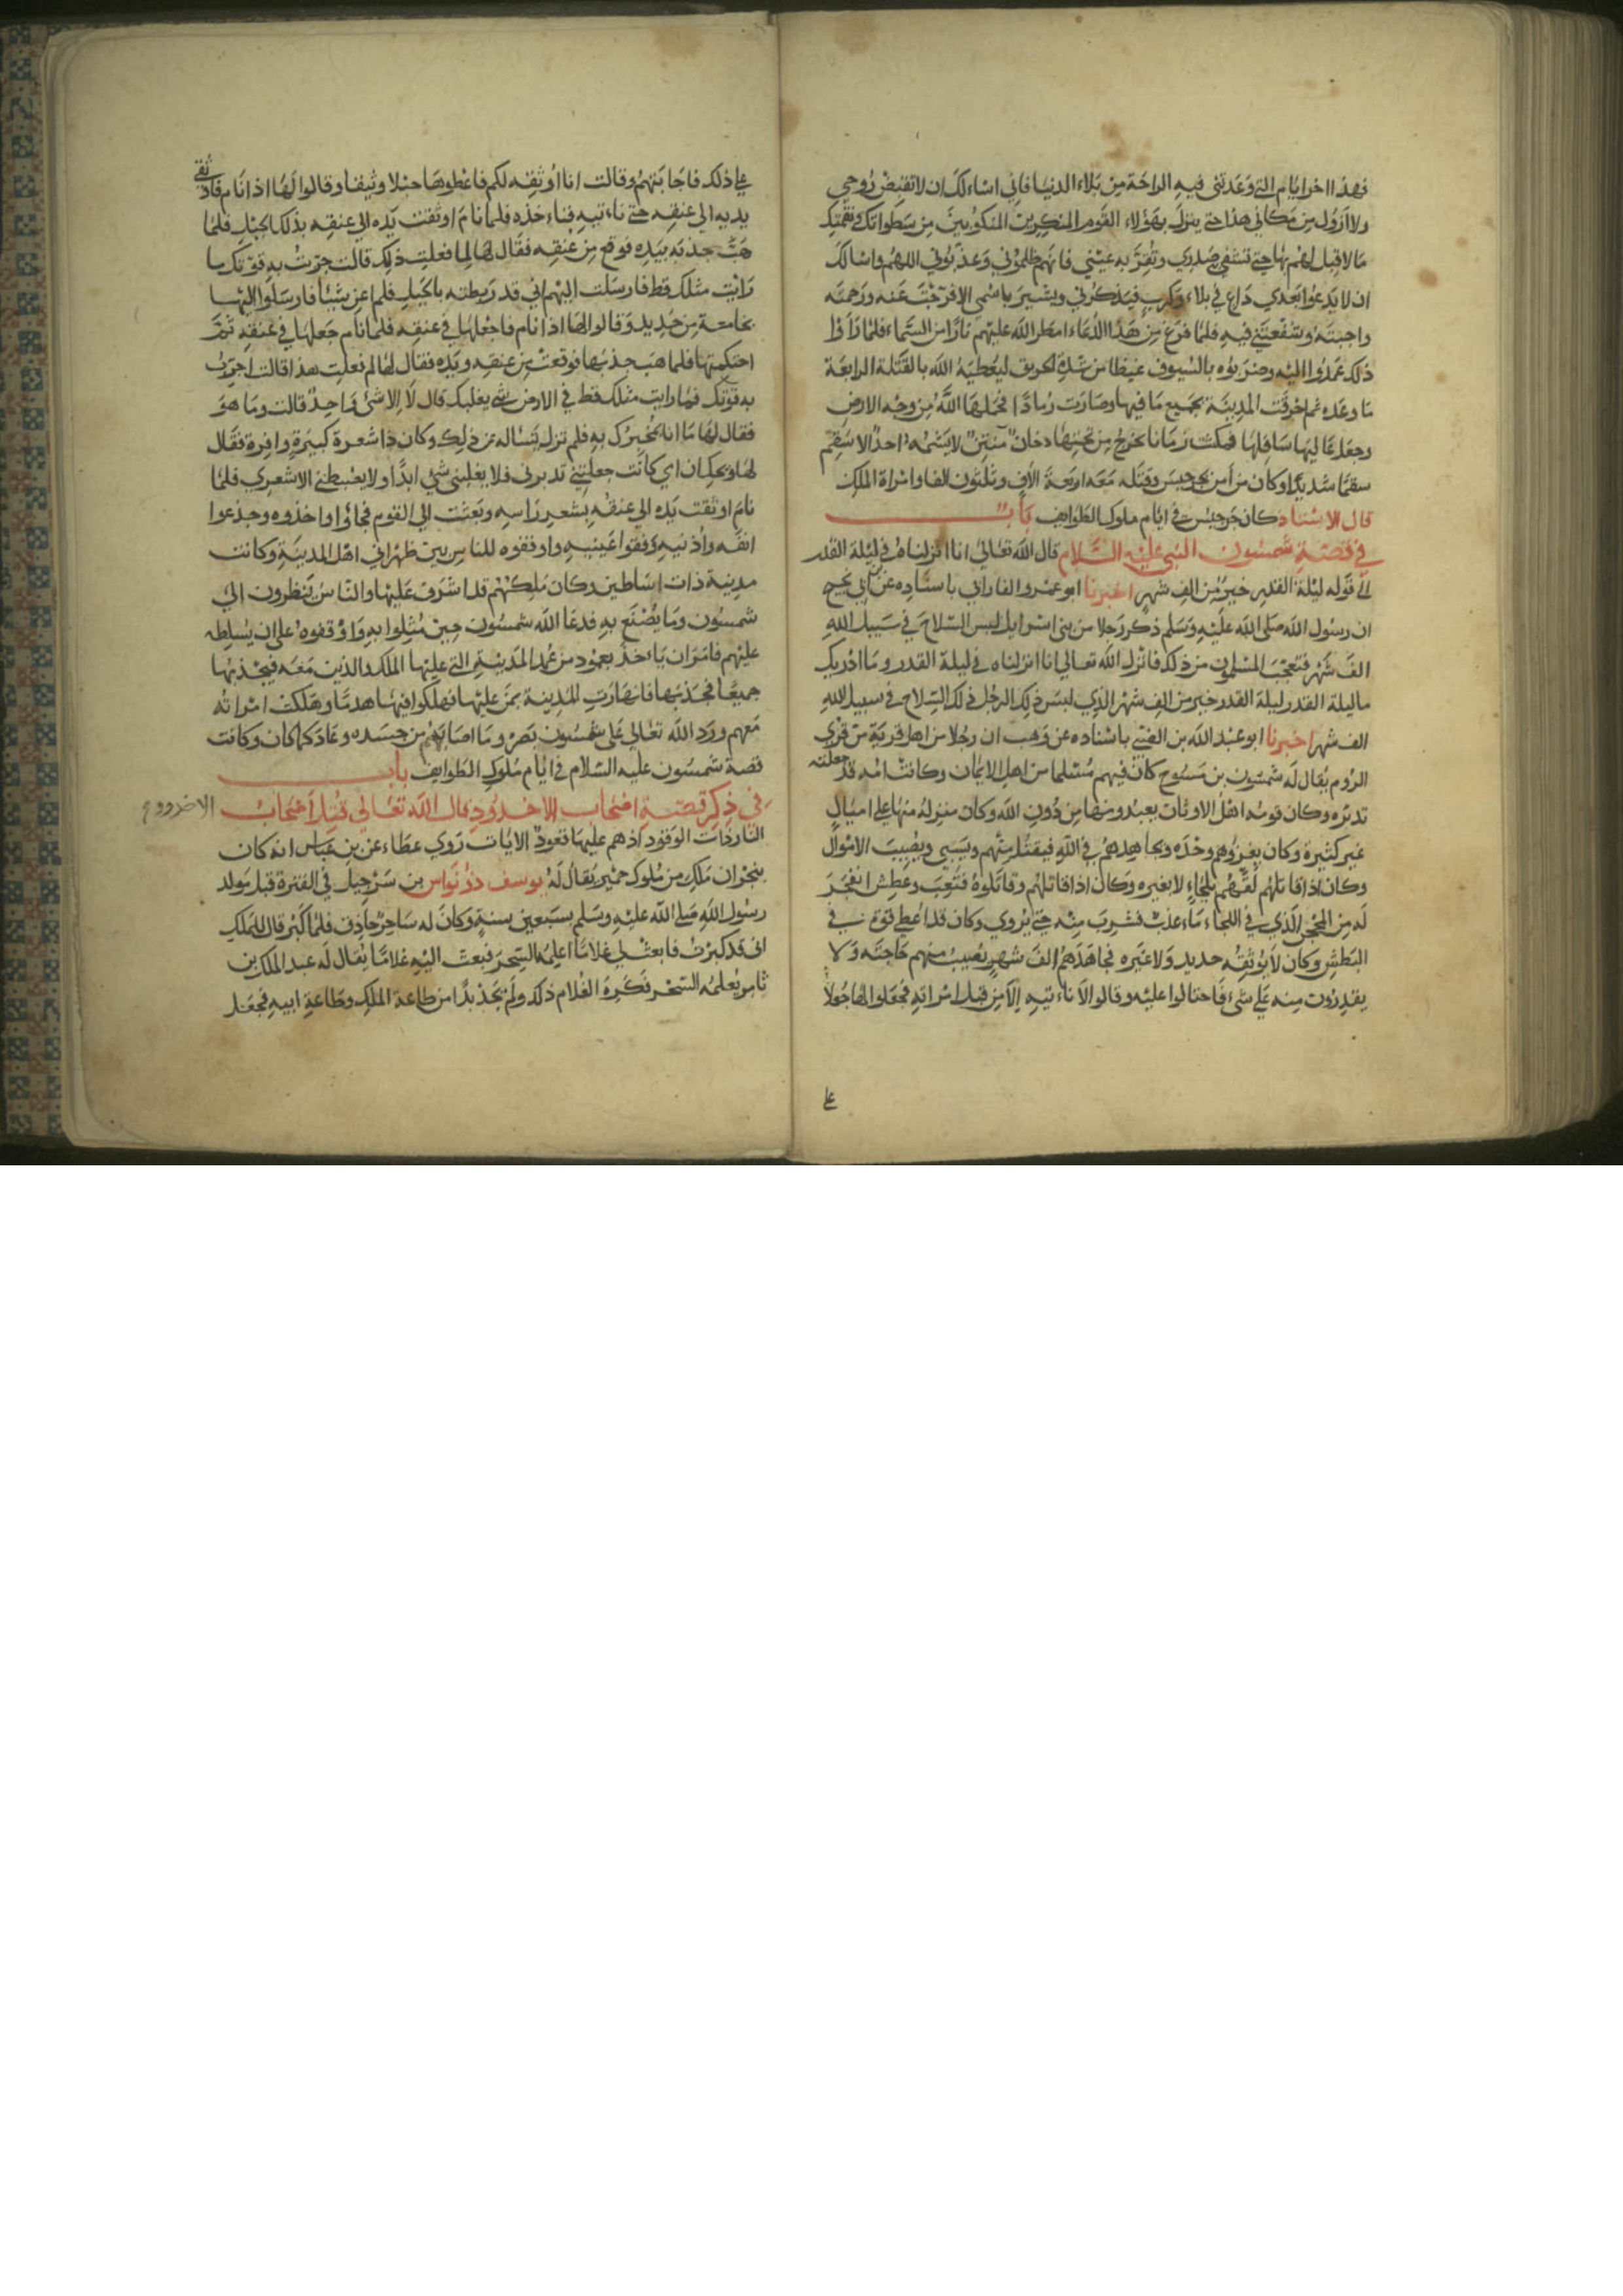 فهذا اخر ايام التي وعدتني فيه الراحة من بلاء الدنيا فاني اسالك ان لا تقبض روحي
ولا ازول من مكاني هذا حتى ينزل بهؤلاء القوم المنكرين المتكبرين من سطواتك ونقمتك
ما لا قبل لهم بها حتى تشفي صدري وتقر به عيني فانهم ظلموني وعذبوني اللهم واسالك
ان لا يدعوا بعدي داع في بلاء وكرب فيذكرني ويشير باسمي الا فرجت عنه ورحمته
واجبته وشفعتني فيه فلما فرغ من هذا الدعاء امطر الله عليهم نارا من السماء فلما راوا
ذلك عمدوا اليه وضربوه بالسيوف غيظا من شدة الحريق ليعطيه الله بالقتلة الرابعة
ما وعده ثم احرقت المدينة بجميع ما فيها وصارت رمادا فحملها الله من وجه الارض
وجعل عاليها سافلها فمكثت زمانا يخرج من تحتها دخان منتن لا يشمه احد الا سقم
سقما شديدا وكان من امن بجرجيس وقتل معه اربعة الاف وثلثون الفا وامراة الملك
قال الاستاد كان جرجيس في ايام ملوك الطوايف باب
في قصة شمسون النبي عليه السلام قال الله تعالى انا انزلناه في ليلة القدر
الى قوله ليلة القدر خير من الف شهر اخبرنا ابو عمرو الفاراتي باسناده عن ابي نجيح
ان رسول الله صلى الله عليه وسلم ذكر رجلا من بني اسرايل لبس السلاح في سبيل الله
الف شهر فتعجب المسلمون من ذلك فانزل الله تعالى انا انزلناه في ليلة القدر وما ادريك
ما ليلة القدر ليلة القدر خير من الف شهر الذي لبس ذلك الرجل في ذلك السلاح في سبيل الله
الف شهر اخبرنا ابو عبد الله بن الفتى باسناده عن وهب ان رجلا من اهل قرية من قرى
الروم يقال له شمسون بن مسوح كان فيهم مسلما من اهل الايمان وكانت امه قد جعلته
نذيره وكان قومه اهل الاوثان يعبدونها من دون الله وكان منزله منها على اميال
غير كثيرة وكان يغزوهم وحده ويجاهدهم في الله فيقتل منهم ويسبي ويصيب الاموال
وكان اذا قاتلهم لقيهم بلحاء لا بغيره وكان اذا قاتلهم وقاتلوه فتعب وعطش انفجر
له من الحجر الذي في اللحاء ماء عذب فشرب منه حتى يروي وكان قد اعطي قوة في
البطش وكان لا يوثقه حديد ولا غيره فجاهدهم الف شهر يصيب منهم حاجته ولا
يقدرون منه على شيء فاحتالوا عليه وقالوا لا ناتيه الا من قبل امراته فجعلوا لها جعلا
على
على ذلك فاجابتهم وقالت انا اوثقه لكم فاعطوها حبلا وثيقا وقالوا لها اذا نام فاوثقي
يديه الى عنقه حتى ناتيه فناخذه فلما نام اوثقت يده الى عنقه بذلك الحبل فلما
هب جذبه بيده فوقع من عنقه فقال لها لما فعلت ذلك قالت جربت به قوتك ما
رايت مثلك قط فارسلت اليهم اني قد ربطته بالحبل فلم اغن شيئا فارسلوا اليها
بجامعة من حديد وقالوا لها اذا نام فاجعلها في عنقه فلما نام جعلها في عنقه ثم
احكمتها فلما هب جذبها فوقعت من عنقه ويده فقال لها لم فعلت هذا قالت اجرب
به قوتك فما رايت مثلك قط في الارض شي يغلبك قال لا الا شئ واحد قالت وما هو
فقال لها ما انا بمخبرك به فلم تزل تساله عن ذلك وكان ذا شعرة كبيرة وافرة فقال
لها ويحك ان امي كانت جعلتني نذيرا فلا يغلبني شي ابدا ولا يضبطني الا شعري فلما
نام اوثقت يده الى عنقه بشعر راسه وبعثت الى القوم فجاؤا واخذوه وجدعوا
انفه واذنيه وفقوا عينيه واوقفوه للناس بين ظهراني اهل المدينة وكانت
مدينة ذات اساطين وكان ملكهم قد اشرف عليها والناس ينظرون الى
شمسون وما يصنع به فدعا الله شمسون حين مثلوا به واوقفوه على ان يسلطه
عليهم فامر ان ياخذ بعمود من عمد المدينة التي عليها الملك والذين معه فيجذبها
جميعا فجذبها فانهارت المدينة بمن عليها فهلكوا فيها هدما وهلكت امراته
معهم ورد الله تعالى على شمسون بصره وما اصابهم من جسده وعاد كما كان وكانت
قصة شمسون عليه السلام في ايام ملوك الطوايف باب
في ذكر قصة اصحاب الاخدود قال الله تعالى قتل اصحاب الاخدود
النار ذات الوقود اذ هم عليها قعود الايات روي عطاء عن بن عباس انه كان
بنجران ملك من ملوك حمير يقال له يوسف ذو نواس بن شرحيل في الفترة قبل مولد
رسول الله صلى الله عليه وسلم بسبعين سنة وكان له ساحر حاذق فلما كبر قال للملك
اني قد كبرت فابعث لي غلاما اعلمه السحر فبعث اليه غلاما يقال له عبد الملك بن
ثامر يعلمه السحر فكره الغلام ذلك ولم يجد بدا من طاعة الملك وطاعة ابيه فجعل